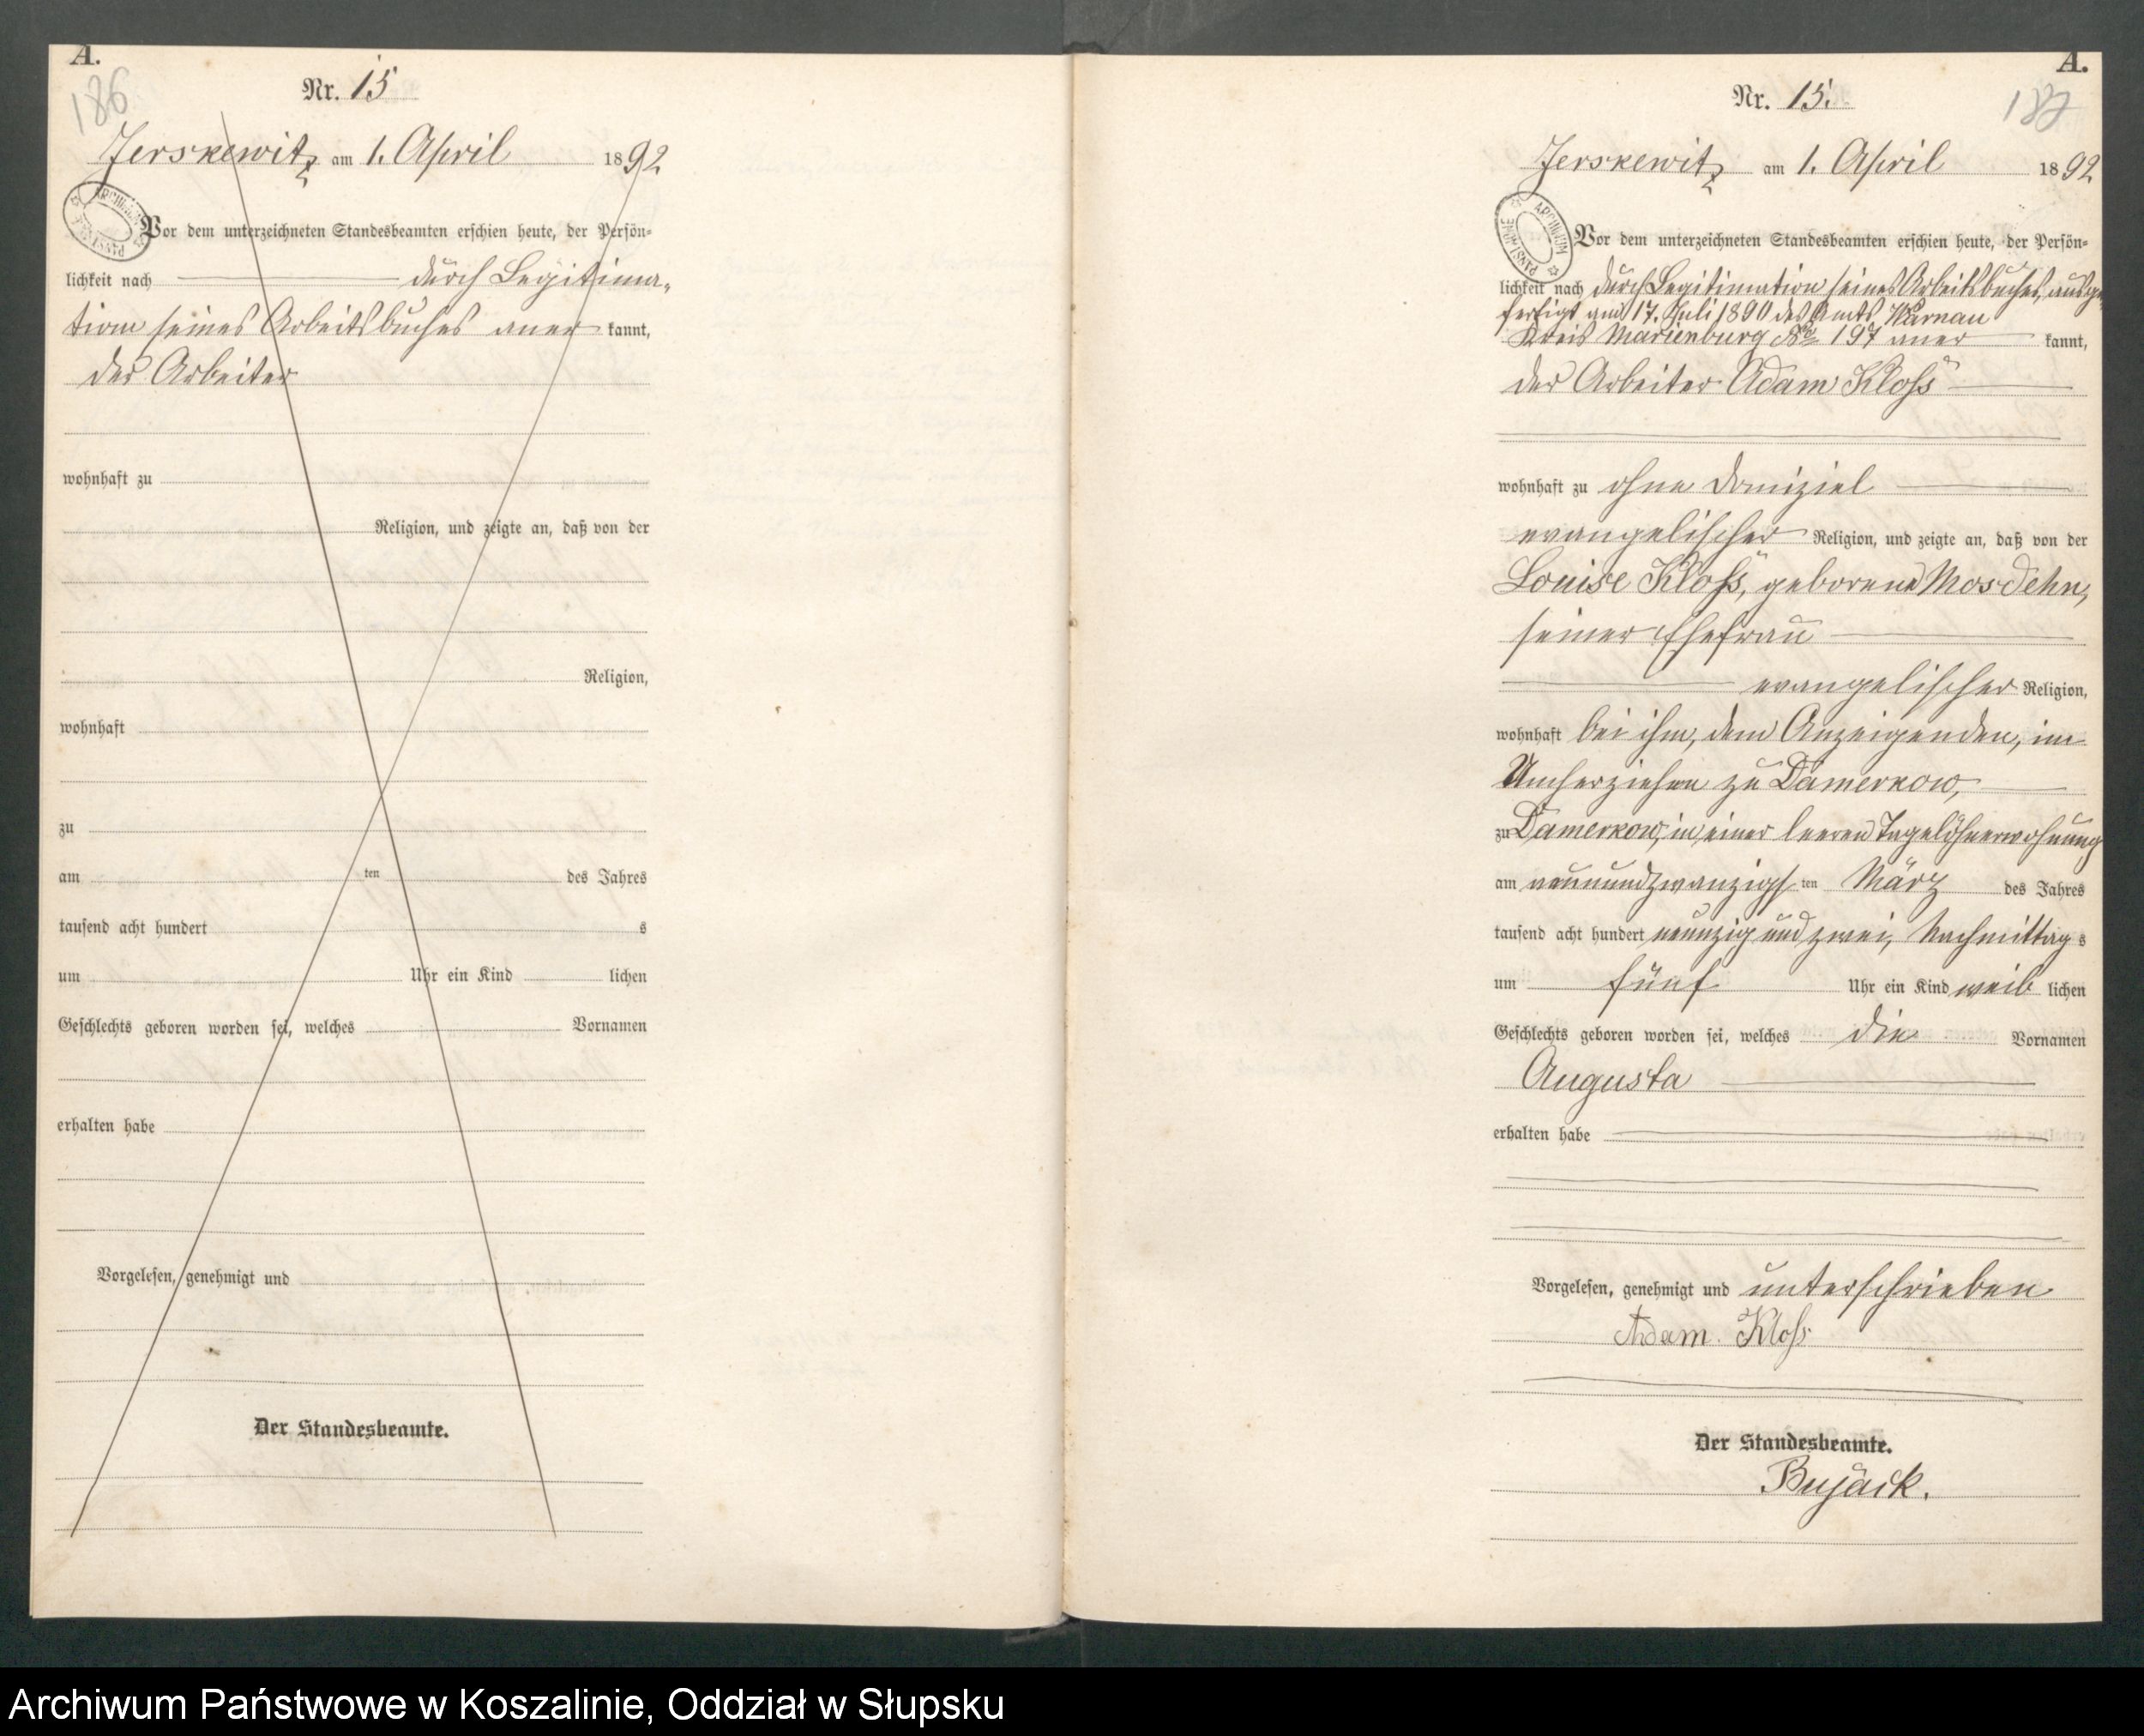 A.
186
Nr. 15
Jerskewitz am 1. April 1892
Vor dem unterzeichneten Standesbeamten erschien heute, der Persön-
lichkeit nach durch Legitima-
tion seines Arbeitsbuches aner kannt,
der Arbeiter
wohnhaft zu
Religion, und zeigte an, daß von der
Religion,
wohnhaft
zu
am ten des Jahres
tausend acht hundert s
um Uhr ein Kind lichen
Geschlechts geboren worden sei, welches Vornamen
erhalten habe
Vorgelesen, genehmigt und
Der Standesbeamte.
A.
Nr. 15.
Jerskewitz am 1. April 1892
Vor dem unterzeichneten Standesbeamten erschien heute, der Persön-
lichkeit nach durch Legitimation seines Arbeitsbuches, ausge-
fertigt am 17. Juli 1890 des Amts Warnau
Kreis Marienburg No 197 aner kannt,
der Arbeiter Adam Kloß
wohnhaft zu ohne Domiziel
evangelischer Religion, und zeigte an, daß von der
Louise Kloß, geborene Mosdehn,
seiner Ehefrau
evangelischer Religion,
wohnhaft bei ihm, dem Anzeigenden, im
Umherziehen zu Damerkow,
zu Damerkow, in einer leeren Tagelöhnerwohnung
am neunundzwanzigsten März des Jahres
tausend acht hundert neunzig und zwei, Nachmittags
um fünf Uhr ein Kind weiblichen
Geschlechts geboren worden sei, welches die Vornamen
Augusta
erhalten habe
Vorgelesen, genehmigt und unterschrieben
Adam. Kloß
Der Standesbeamte.
Bujack.
Archiwum Państwowe w Koszalinie, Oddział w Słupsku